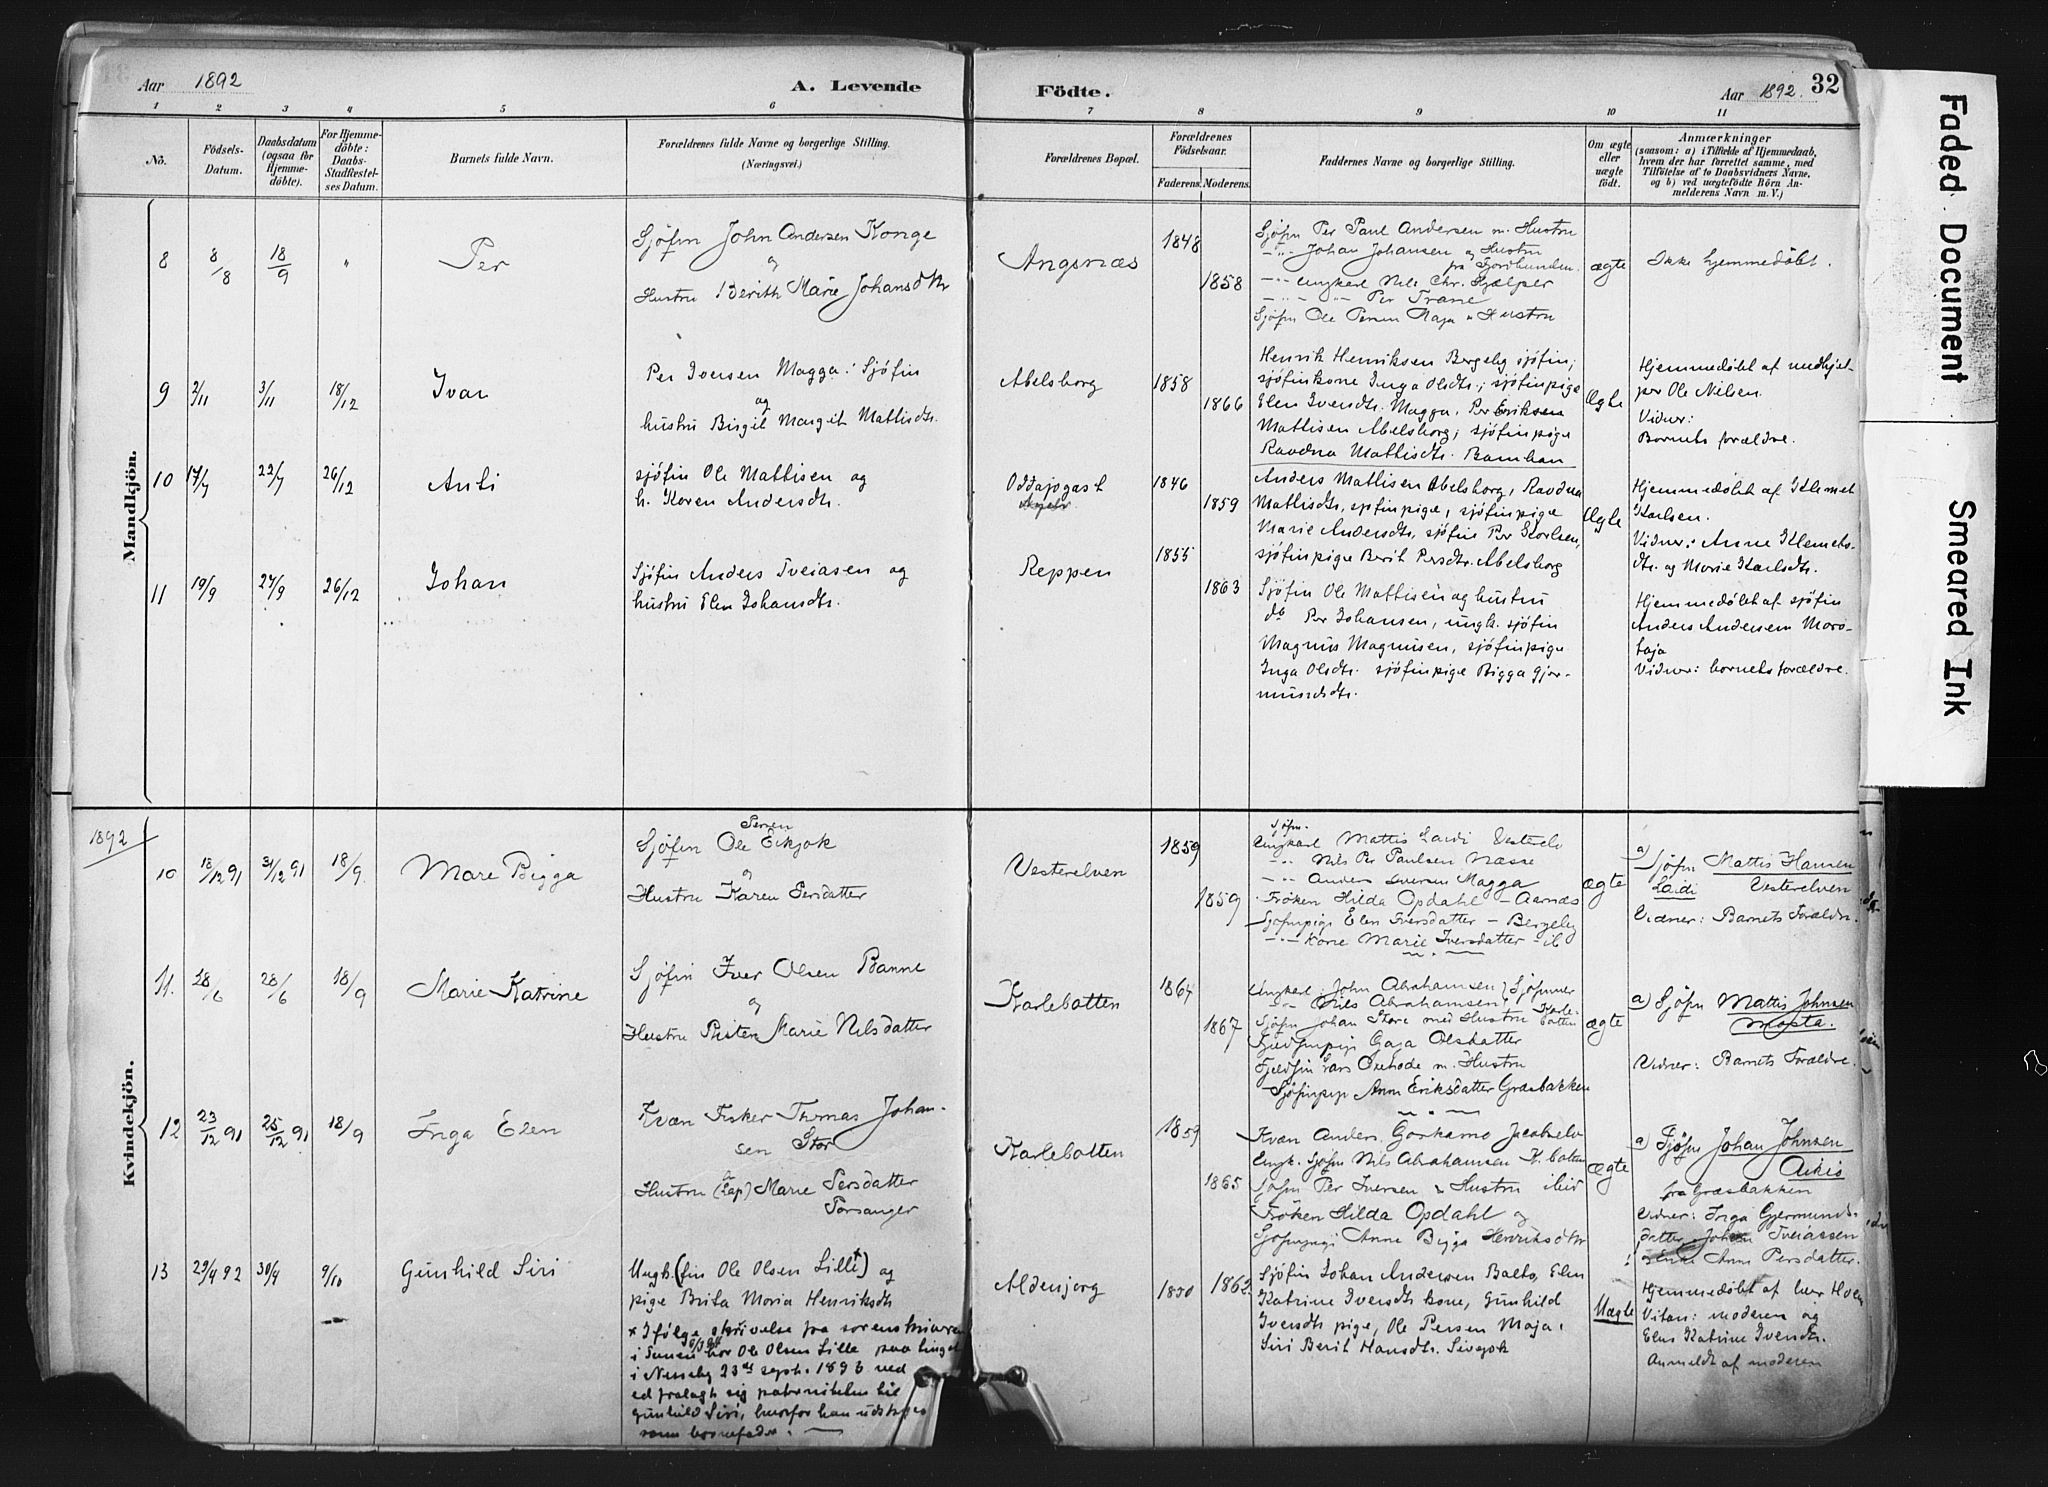 Aar 1892
A. Levende
Födte.
Aar 1892.
32
1 2 3 4 5 6 7 8 9 10 11
No.
Födsels-Datum.
Daabsdatum (ogsaa for Hjemmedöbte).
For Hjemmedöbte: Daabs-Stadfæstelses Datum.
Barnets fulde Navn.
Forældrenes fulde Navne og borgerlige Stilling. (Næringsvei.)
Forældrenes Bopæl.
Forældrenes Födselsaar.
Faderens. Moderens.
Faddernes Navne og borgerlige Stilling.
Om ægte eller uægte födt.
Anmærkninger
(saasom: a) i Tilfælde af Hjemmedaab,
hvem der har forrettet samme, med
Tilföielse af to Daabsvidners Navne,
og b) ved uægtefödte Börn An-
melderens Navn m. V.)
Mandkjön.
8
8/8
18/9
"
Per
Sjöfin John Andersen Konge
og
Hustru Berith Marie Johansdtr
Angsnæs
1848
1858
Sjöfin Per Paul Andersen m. Hustru
-"- Johan Johansen og Hustru
fra Fjordbunden
-"- Ungkarl Nils Chr. Hjælper
-"- -"- Per Trane
Sjöfin Ole Persen Maja & Hustru
ægte
Ikke hjemmedöbt.
9
2/11
3/11
18/12
Ivar
Per Iversen Magga: Sjöfin
og
hustru Birgit Margit Mattisdtr.
Abelsborg
1858
1866
Henrik Henriksen Bergeby sjöfin;
sjöfinkone Inga Olsdtr.; sjöfinpige
Elen Iversdtr. Magga, Per Eriksen
Mattisen Abelsborg; sjöfinpige
Ravdna Mattisdtr.
Ægte
Hjemmedöbt af medhjel-
per Ole Nilsen.
Vidner:
Barnets forældre.
10
17/7
22/7
26/12
Anti
sjöfin Ole Mattisen og
h. Karen Andersdtr.
Oddajogast
1846
1859
Anders Mattisen Abelsborg, Ravdna
Mattisdtr, sjöfinpige, sjöfinpige
Marie Andersdtr, sjöfin Per Karlsen,
sjöfinpige Berit Persdtr. Abelsborg
Ægte
Hjemmedöbt af Klemet
Karlsen.
Vidner: Anne Klemets-
dtr. og Marie Karlsdtr.
11
19/9
27/9
26/12
Johan
Sjöfin Anders Tveiasen og
hustru Elen Johansdtr.
Reppen
1855
1863
Sjöfin Ole Mattisen og hustru
do Per Johansen, ungk. sjöfin
Magnus Magnusen, sjöfinpige
Inga Olsdtr. sjöfinpige Bigga Gjer-
mundsdtr.
Hjemmedöbt af sjöfin
Anders Andersen Moro-
taja
Vidner: barnets forældre.
1892
Kvindekjön.
10
18/12 91
31/12 91
18/9.
Mare Bigga
Persen
Sjöfin Ole Eikjok
og
Hustru Karen Persdatter
Vesterelven
1859
1859
Sjöfin.
Ungkarl Mattis Laidi Vesterelv
-"- Nils Per Paulsen Næsse
-"- Anders Iversen Magga
Fröken Hilda Opdahl - Aarnæs
Sjöfinpige Elen Iversdatter - Bergeby
-"- Kone Marie Iversdatter - ib
ægte
a) Sjöfin Mattis Hansen
Laidi Vesterelven
Vidner: Barnets Forældre.
11.
28/6
28/6
18/9
Marie Katrine
Sjöfin Iver Olsen Banne
og
Hustru Kisten Marie Nilsdatter
Karlebotten
1864
1867
Ungkarl: John Abrahamsen } Sjöfinner
-"- Nils Abrahamsen } Karle-
botten
Sjöfin Johan Store med Hustru
Fjeldfinpige Gaja Olsdatter
Fjeldfin Lars Oxehode m. Hustru
Sjöfinpige Anne Eriksdatter Græsbakken
ægte
a) Sjöfin Mattis Johnsen
Mosta.
Vidner: Barnets Forældre.
12
23/12 91
25/12 91
18/9
Inga Elen
Kvæn Fisker Thomas Johan-
sen Stor
Hustru (Lap) Marie Persdatter
Porsanger
Karlebotten
1859
1865
Kvæn Anders Goskamo Jacobselv
Ungk. Sjöfin Nils Abrahamsen K.botten
Sjöfin Per Iversen & Hustru ibid
Fröken Hilda Opdahl og
Sjöfinpige Anne Bigga Henriksdtr
ægte
a) Sjöfin Johan Johnsen
Aikio
fra Græsbakken
Vidner: Inga Gjermunds-
datter, Johan Tveiassen
Enke Anne Persdatter.
13
29/4 92
30/4
9/10
Gunhild Siri
Ungk. (fin Ole Olsen Lille+) og
pige Brita Maria Henriksdtr
+ Ifölge skrivelse fra sorenskriveren
i Tanen har Ole Olsen Lille paa tinget
i Nesseby 23de sept. 1893 ved
ed fralagt sig paterniteten til
Gunhild Siri, hvorfor han udstryges
som barnefader.
Aldenjorg
1850
1862
Sjöfin Johan Andersen Balto, Elen
Katrine Iversdtr kone, Gunhild
Iversdtr pige, Ole Persen Maja,
Siri Berit Hansdtr. Sivejok
Uægte
Hjemmedöbt af herr Hoem
Vitner: moderen og
Elen Katrine Iversdtr.
Anmeldt af moderen
Faded Document
Smeared Ink